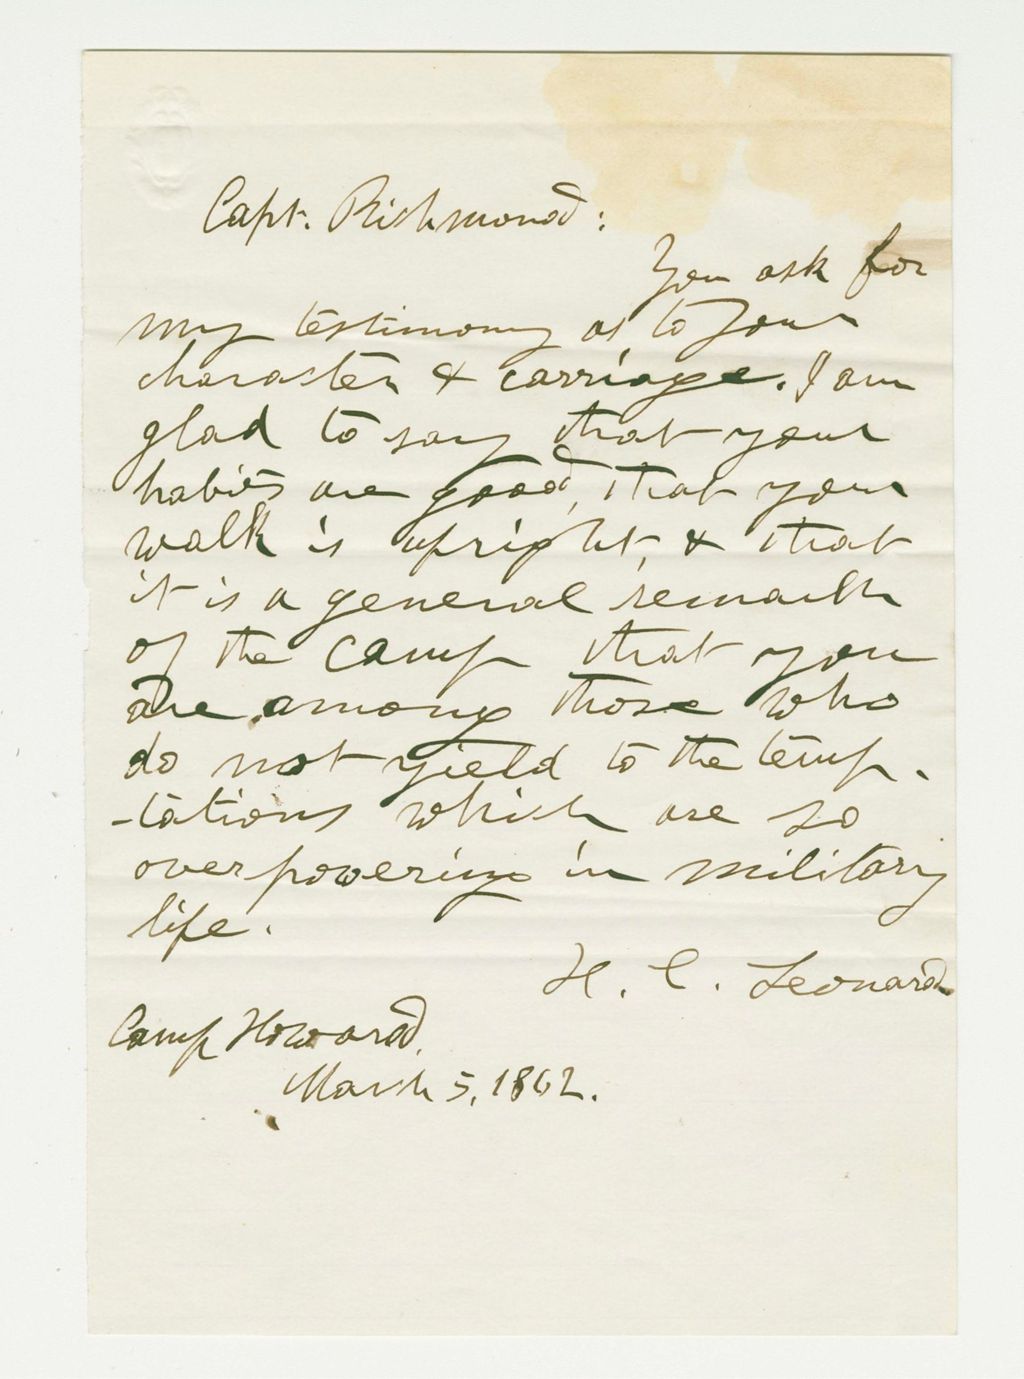 Capt. Richmond:
You ask for
my testimony as to your
character & carriage. I am
glad to say that your
habits are good, that your
walk is upright, & that
it is a general remark
of the camp that you
are among those who
do not yield to the temp-
-tations which are so
overpowering in military
life.
H. C. Leonard
Camp Howard,
March 5, 1862.